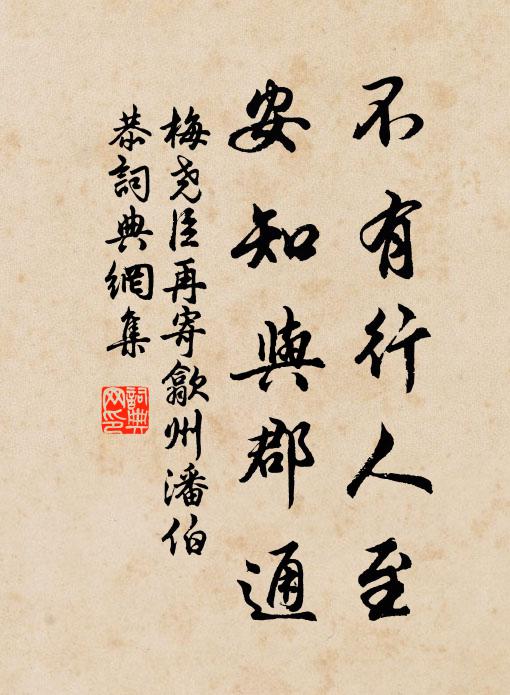 不有行人至
安知與郡通
梅堯臣再寄歙州潘伯
恭詞典網集
詞典
网印